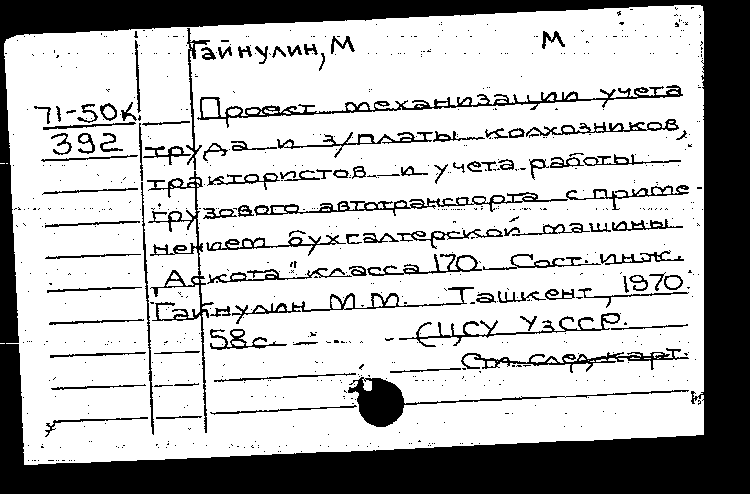 Гайнулин, М М
71-50к Проект механизации учета
392 труда и з/платы колхозников,
трактористов и учета работы
грузового автотранспорта с приме-
нением бухгалтерской машины
"Аскота" класса 170. Сост. инж.
Гайнулин М.М. Ташкент, 1970.
58с. (ЦСУ УзССР.
См. след. карт.